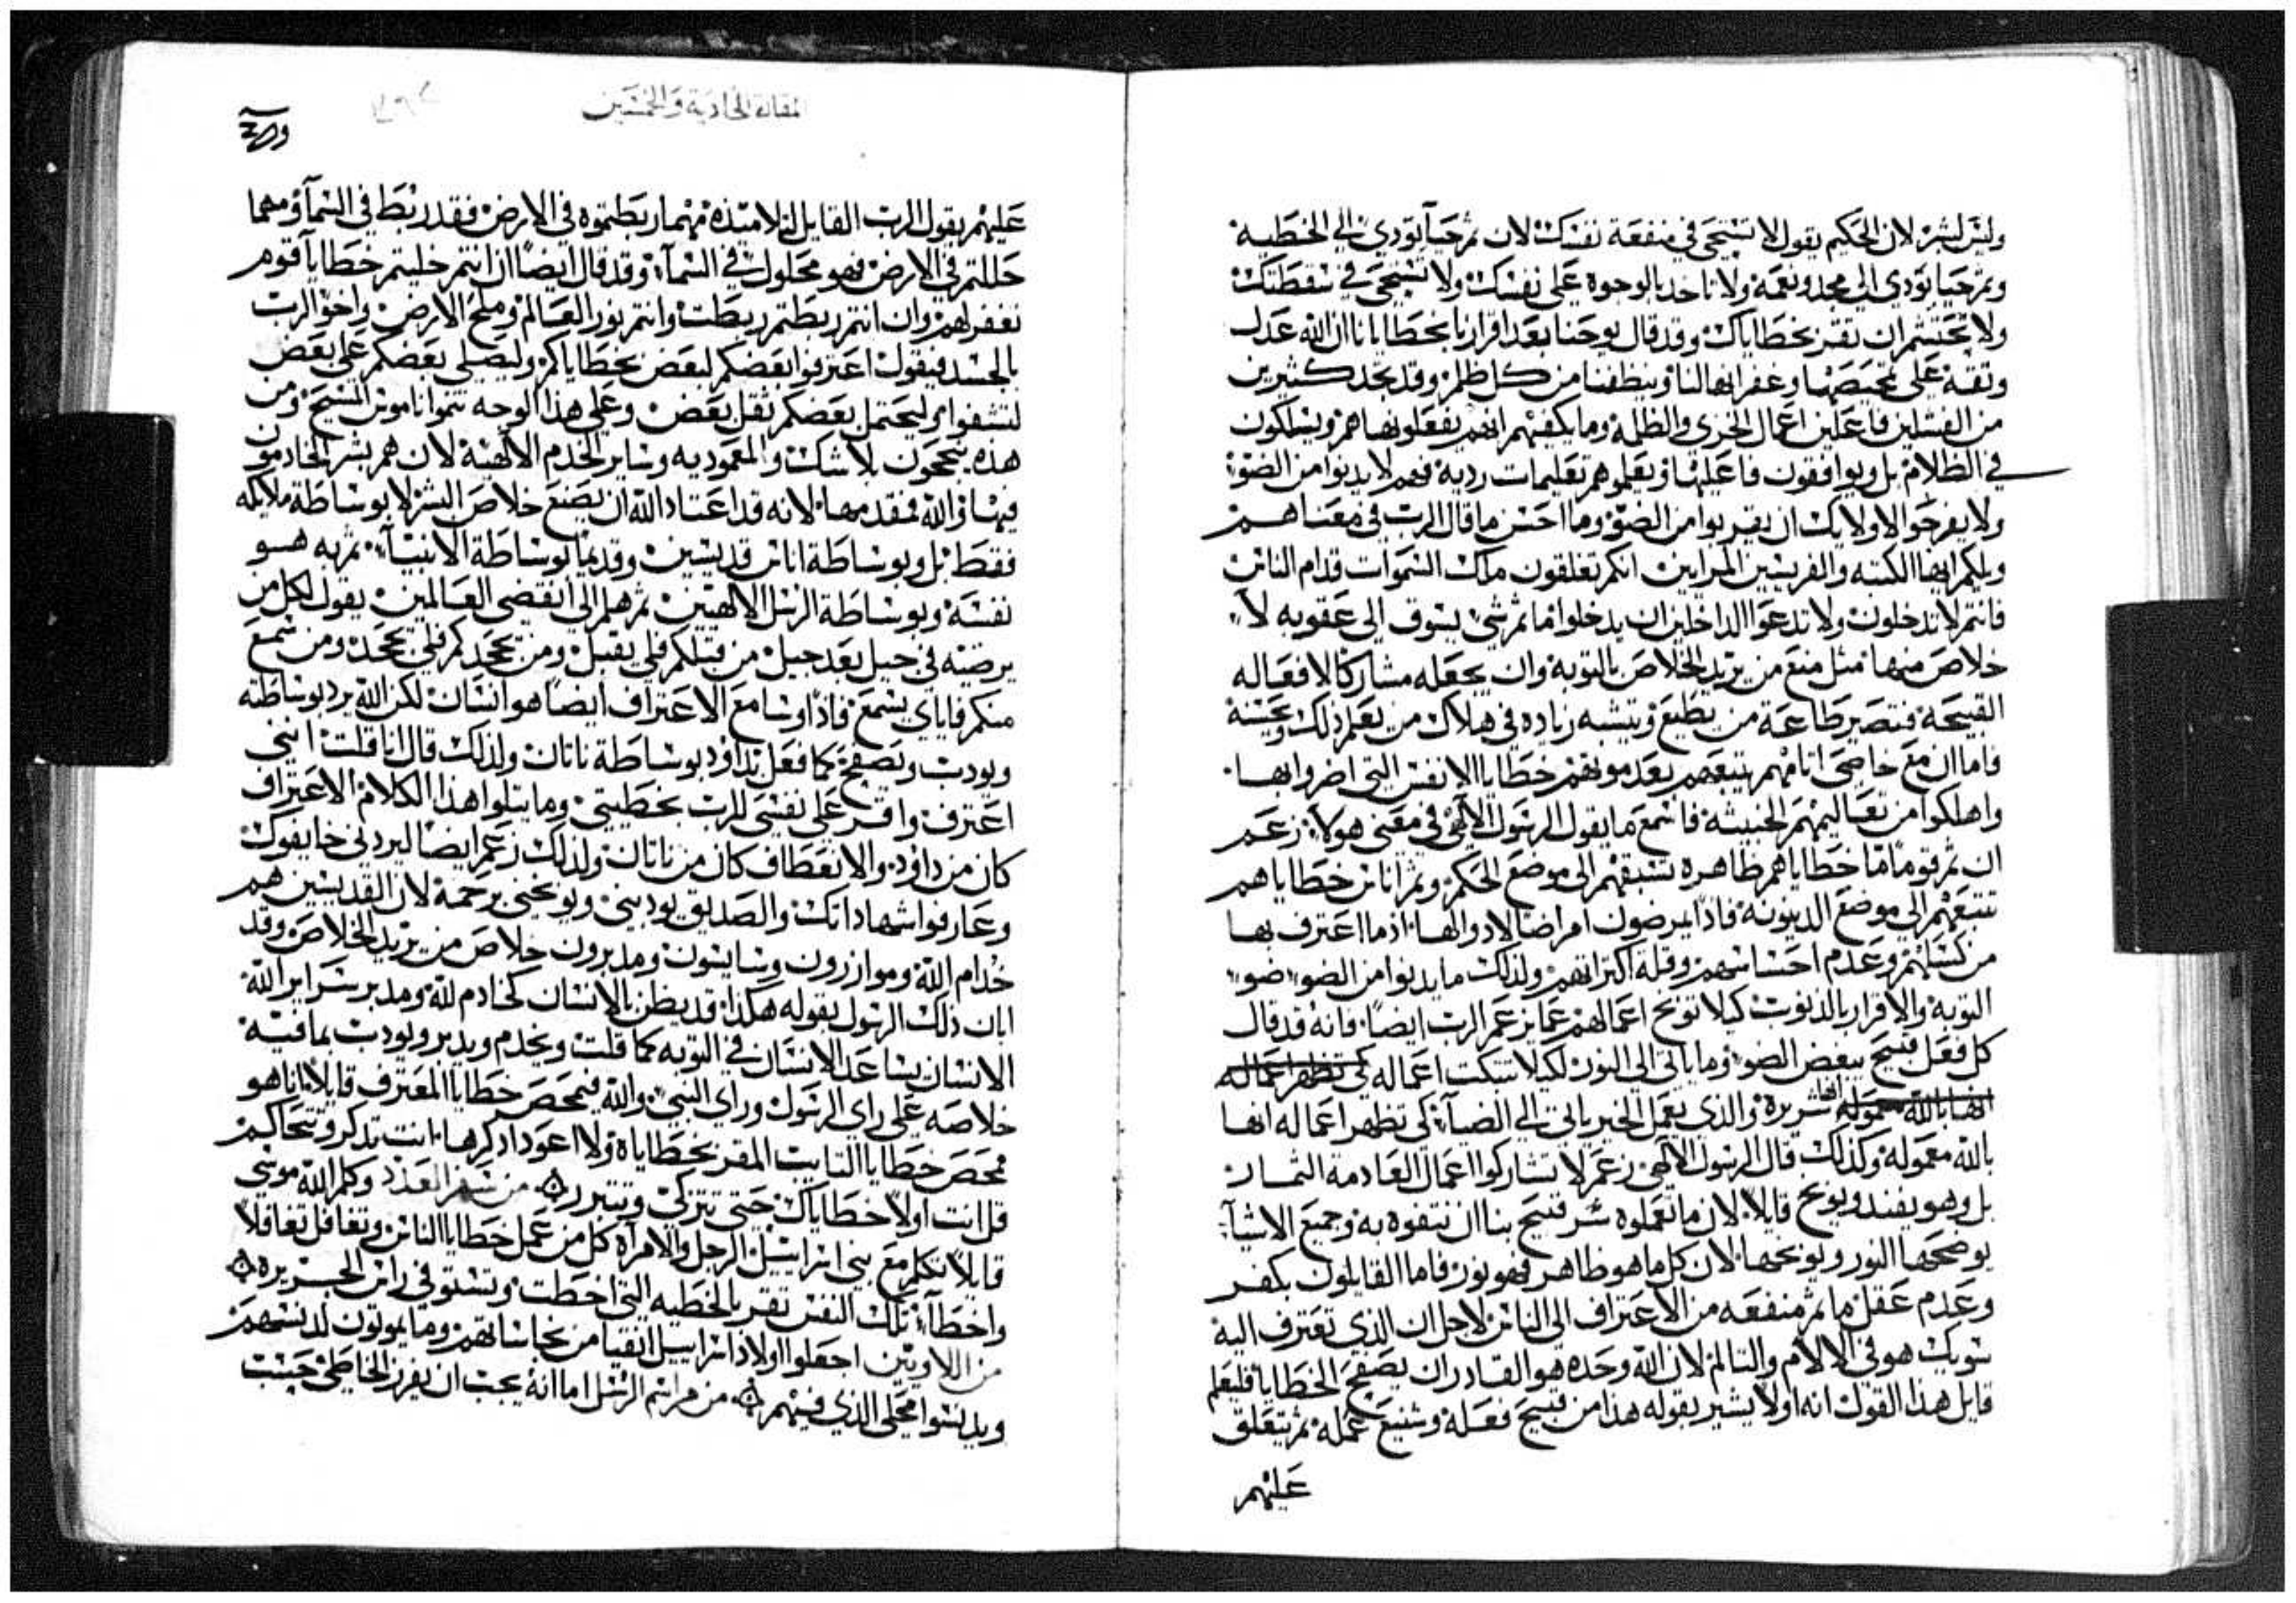 وليس لبشر لان الحكيم يقول لا تستحي في منفعة نفسك لان ثم حيآ يودي الي الخطيه
وثم حيا يودي الى مجد ونعمة ولا تاخد بالوجوه على نفسك ولا تستحى في سقطتك
ولا تحتشم ان تقر بخطاياك وقد قال يوحنا بعد اقرارنا بخطايانا ان الله عدل
وثقة على تمحيصها وغفرانها لنا وينظفنا من كل ظلم وقد نجد كثيرين
من الفشلين فاعلين اعمال الخزي والظلمة وما يكفيهم انهم يفعلونها هم ويسلكون
في الظلام بل ويوافقون فاعليها ويعلموهم تعليمات رديه فهم لا يدنوا من الضوء
ولا يفرجوا لاولايك ان يقربوا من الضوء وما احسن ما قال الرب في معناهم
ويلكم ايها الكتبه والفريسين المرايين انكم تغلقون ملك السموات قدام الناس
فانتم لا تدخلون ولا تدعوا الداخلين ان يدخلوا فما ثم شي يسوق الى عقوبه لا
خلاص منها مثل منع من يريد الخلاص بالتوبة وان يجعله مشاركا لافعاله
القبيحة فتصير طاعة من يطيع وتيشبه زياده في هلاك من يعلم ذلك ويحسنه
فاما ان مع خاصي اثامهم تتبعهم بعد موتهم خطايا الانفس التي اضروا بها
واهلكوا من تعاليمهم الخبيثة فاسمع ما يقول الرسول الالهي في معنى هولاء زعم
ان ثم قوما ما خطاياهم ظاهره تسبقهم الى موضع الحكم وثم اناس خطاياهم
تتبعهم الى موضع الدينونة فاذا يمرضون امراضا لا دوا لها اذ ما اعترف بها
من كسلهم وعدم احساسهم وقلة اكتراثهم ولذلك ما يدنوا من الضوء ضوء
التوبه والاقرار بالذنوب كيلا توبخ اعمالهم عما يزعم الرب ايضا فانه قد قال
كل فعل قبيح يبغض الضوء وما ياتى الى النور لكيلا تبكت اعماله كي تظهر اعماله
انها بالله معموله انها شريرة والذي يعمل الخير ياتى الي الضيآء كي تظهر اعماله انها
بالله معمولة وكذلك قال الرسول الالهي زعم لا تشاركوا اعمال العادمة الثمار
بل وهو يفند ويوبخ قايلا لان ما تعملوه شر قبيح بنا ان نتفوه به وجميع الاشيآء
يوضحها النور ويوبخها لان كل ما هو ظاهر فهو نور فاما القايلون بكفر
وعدم عقل ما ثم منفعه من الاعتراف الى الناس لاجل ان الذي تعترف اليه
شويك هو في الالام والتالم لان الله وحده هو القادر ان يصفح الخطايا فليعلم
قايل هذا القول انه اولا يشير بقوله هذا من قبيح فعله وشنيع عمله ثم يتغلق
عليهم
المقالة الحادية والخمسين
عليهم بقول الرب القايل لتلاميذه مهما ربطتموه في الارض فقد ربط في السمآ ومهما
حللتم في الارض فهو محلول في السمآء وقد قال ايضا ان انتم خليتم خطايا قوم
تغفر لهم وان انتم ربطتم ربطت وانتم نور العالم وملح الارض واخو الرب
بالجسد فيقول اعترفوا بعضكم لبعض بخطاياكم وليصلي بعضكم على بعض
لتشفوا وليحتمل بعضكم ثقل بعض وعلى هذا الوجه تتموا ناموس المسيح ومن
هذه ينجحون بلا شك والمعموديه وساير الخدم الالهية لان هم بشر الخادمون
فيها والله فمقدمها لانه قد اعتاد الله ان يصنع خلاص البشر لا بوساطة ملايكه
فقط بل وبوساطة اناس قديسين وقديما بوساطة الانبيآء ثم به هو
نفسه وبوساطة الرسل الالهيين ثم هلم الى انقضى العالمين يقول لكل من
يرضيه في جيل بعد جيل من قبلكم فلي يقبل ومن يجحدكم فلي يجحد ومن سمع
منكم فاياي يسمع فاذا وسامع الاعتراف ايضا هو انسان لكن الله يرد بوساطته
ويودب ويصفح كما فعل بداود بوساطة ناتان ولذلك قال انا قلت انني
اعترف واقر على نفسى للرب بخطيتي وما يتلوا هذا الكلام الاعتراف
كان من داود والانعطاف كان من ناتان ولذلك زعم ايضا ليردني خايفوك
وعارفوا شهاداتك والصديق يودبني ويوبخني برحمة لان القديسين هم
خدام الله وموازرون وسايسون ومدبرون خلاص من يريد الخلاص وقد
ابان ذلك الرسول بقوله هكذا قد يظن بالانسان كخادم لله ومدبر سراير الله
الانسان يساعد الانسان في التوبه كما قلت ويخدم ويدبر ويودب بما فيه
خلاصه على راي الرسول وراي النبي والله فيمحص خطايا المعترف قايلا انا هو
ممحص خطايا التايب المقر بخطاياه ولا اعود اذكرها انت تذكر ونتحاكم
قل انت اولا خطاياك حتى تتزكى وتتبرر من سفر العدد وكلم الله موسى
قايلا تكلم مع بني اسراييل الرجل والامرآه كل من عمل خطايا الناس وتغافل تغافلا
واخطآء تلك النفس تقر بالخطيه التي اخطت وتستوفي راس الجزيره
من اللاويين اجعلوا اولاد اسراييل اتقيا من نجاساتهم وما يموتون لدنسهم
ويدنسوا محلى الذي فيهم من مراسم الرسل اما انه يجب ان يفرز الخاطي حسب